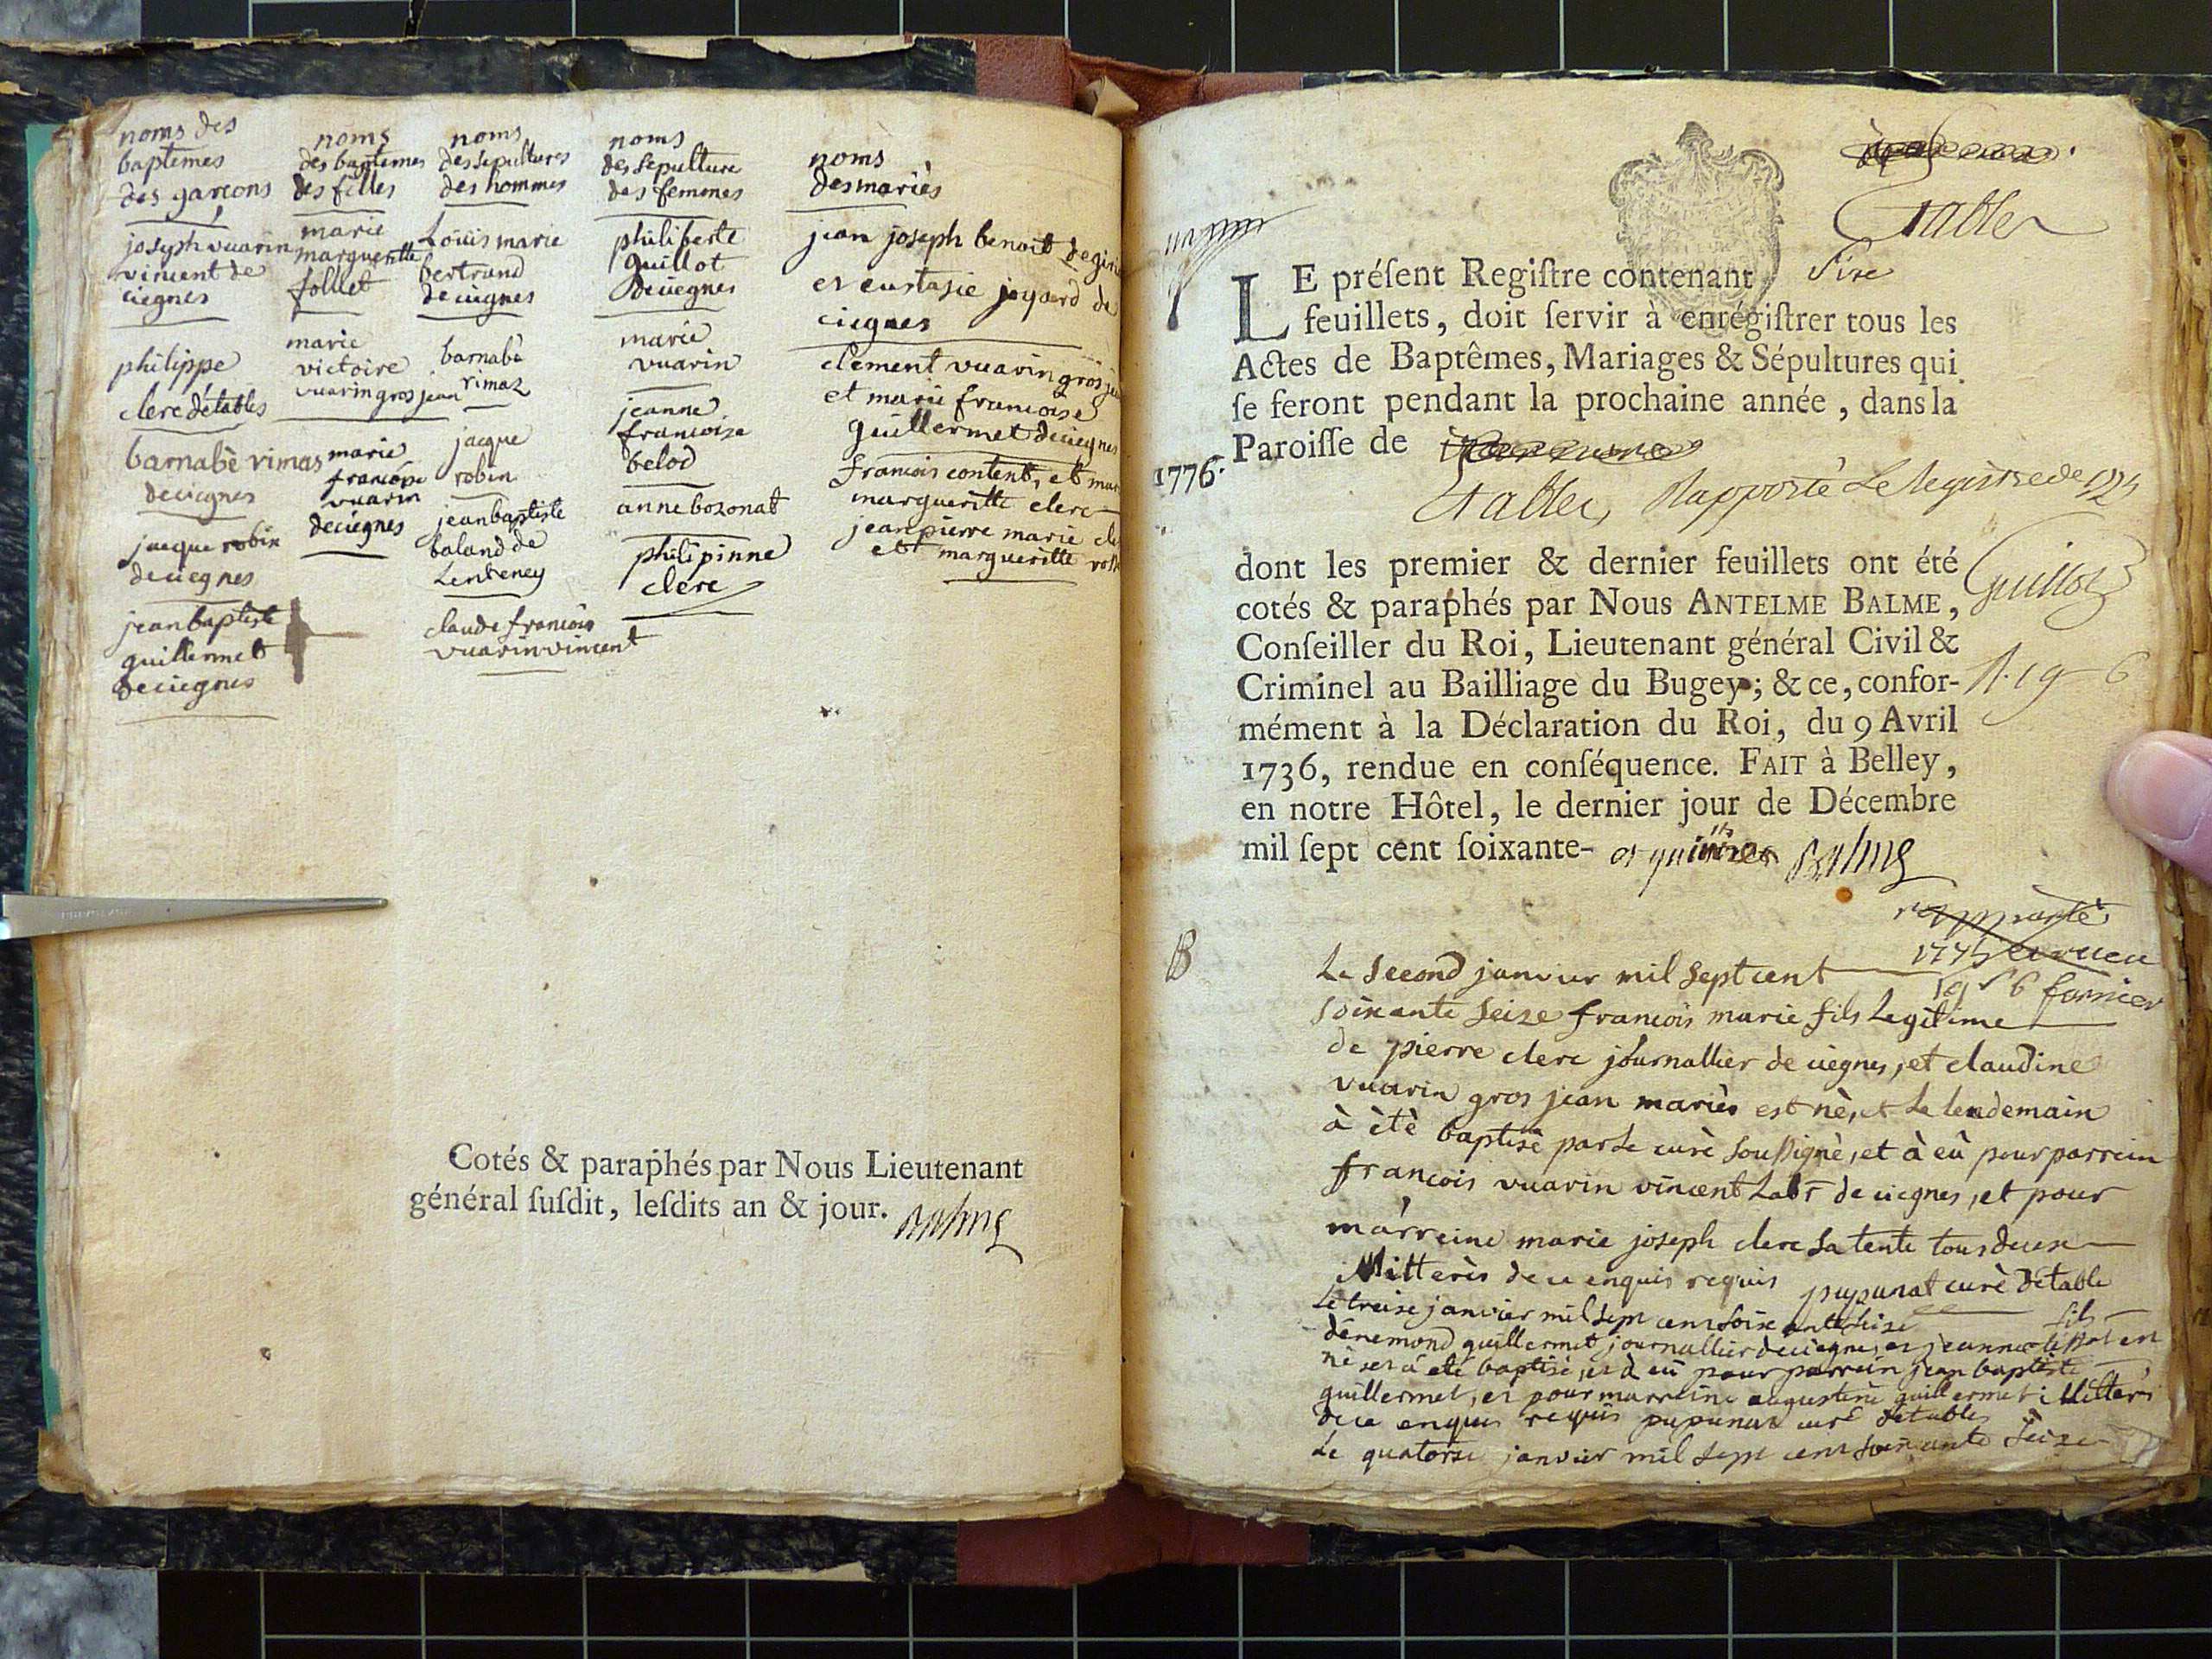 noms des
baptemes
des garcons
joseph vuarin
vincent de
ciegnes
philippe
clerc détables
barnabè rimas
deciegnes
jacque robin
deciegnes
jean baptiste
guillermet
deciegnes
noms
des baptemes
des filles
marie
margueritte
follet
marie
victoire
vuarin gros jean
marie
francoise
vuarin
deciegnes
noms
des sepultures
des hommes
Loüis marie
bertrand
deciegnes
barnabè
rimaz
jacque
robin
jean baptiste
baland de
Lenteney
claude francois
vuarin vincent
noms
des sepulture
des femmes
philiberte
guillot
deciegnes
marie
vuarin
jeanne
francoise
belod
anne bozonat
philipinne
clerc
noms
des mariès
jean joseph benoit
et eustasie joyard de
ciegnes
clement vuarin gros
et marie francoise
guillermet deciegnes
francois content, et
margueritte clerc
jean pierre marie
et margueritte
Cotés & paraphés par Nous Lieutenant
général ſuſdit, leſdits an & jour. Balme
Etables
LE préſent Regiſtre contenant Sixe
feuillets, doit ſervir à enrégiſtrer tous les
Actes de Baptêmes, Mariages & Sépultures qui
ſe feront pendant la prochaine année, dans la
Paroiſſe de
1776.
Etables, Rapporté Le registre de
dont les premier & dernier feuillets ont été
cotés & paraphés par Nous ANTELME BALME,
Guillot
Conſeiller du Roi, Lieutenant général Civil &
Criminel au Bailliage du Bugey; & ce, confor-
mément à la Déclaration du Roi, du 9 Avril
1736, rendue en conſéquence. FAIT à Belley,
en notre Hôtel, le dernier jour de Décembre
mil ſept cent ſoixante- et quinze Balme
rapporté
1775
B
Le second janvier mil sept cent
soixante seize francois marie fils Legitime
de pierre clerc journallier de ciegnes, et claudine
vuarin gros jean mariès est nè, et Le lendemain
à étè baptisè par Le curè soussignè, et à eû pour parrein
francois vuarin vincent Labr de ciegnes, et pour
marreine marie joseph clerc sa tente tous deux
illitterès de ce enquis requis pupunat curè détable
Le treise janvier mil sept cent soixante seise fils
dénemond guillermet journallier deciegnes et jeanne
nè et à eté baptisè, et à eû pour parrein jean baptiste
guillermet, et pour marreine augustine guillermet illitterès
de ce enquis requis pupunat curè détables
Le quatorse janvier mil sept cent soixante seize